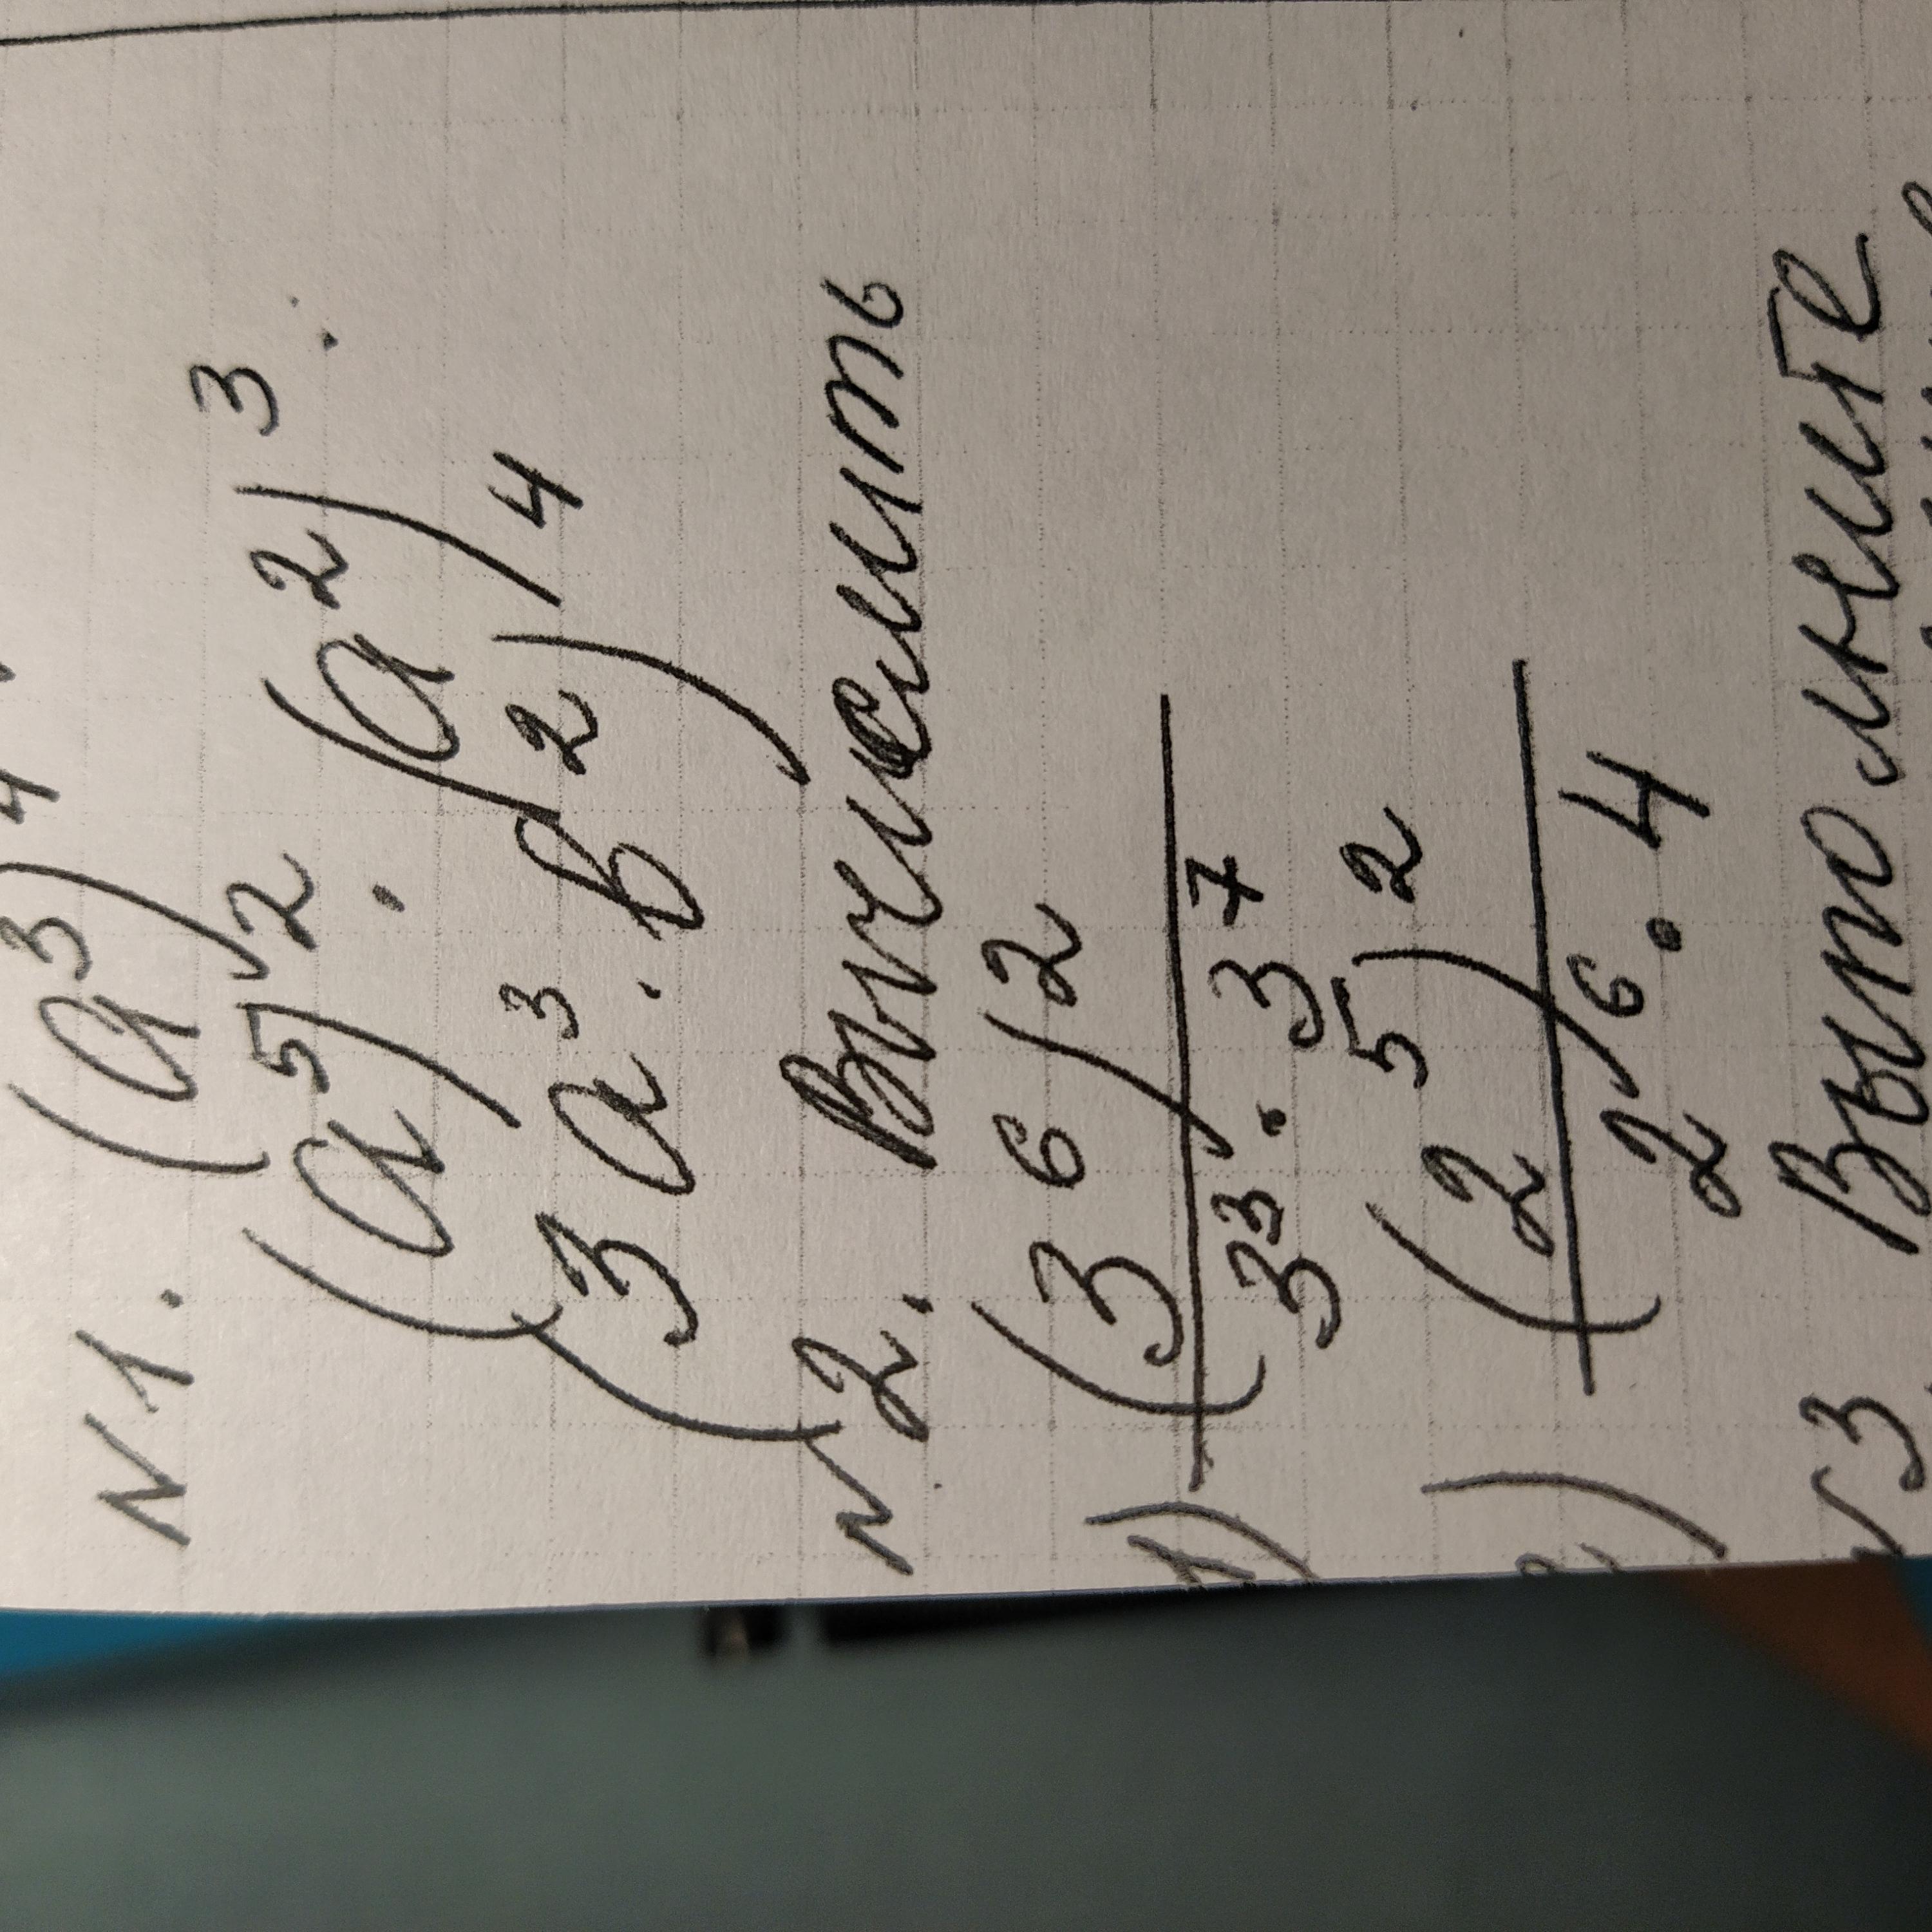 N1. (a³)⁴
(a⁵)² · (a²)³
(3a³ · b²)⁴
N2. Вычислить
1) (3⁶)²
3³ · 3⁷
2) (2⁵)²
2⁶ · 4
N3. Выполните